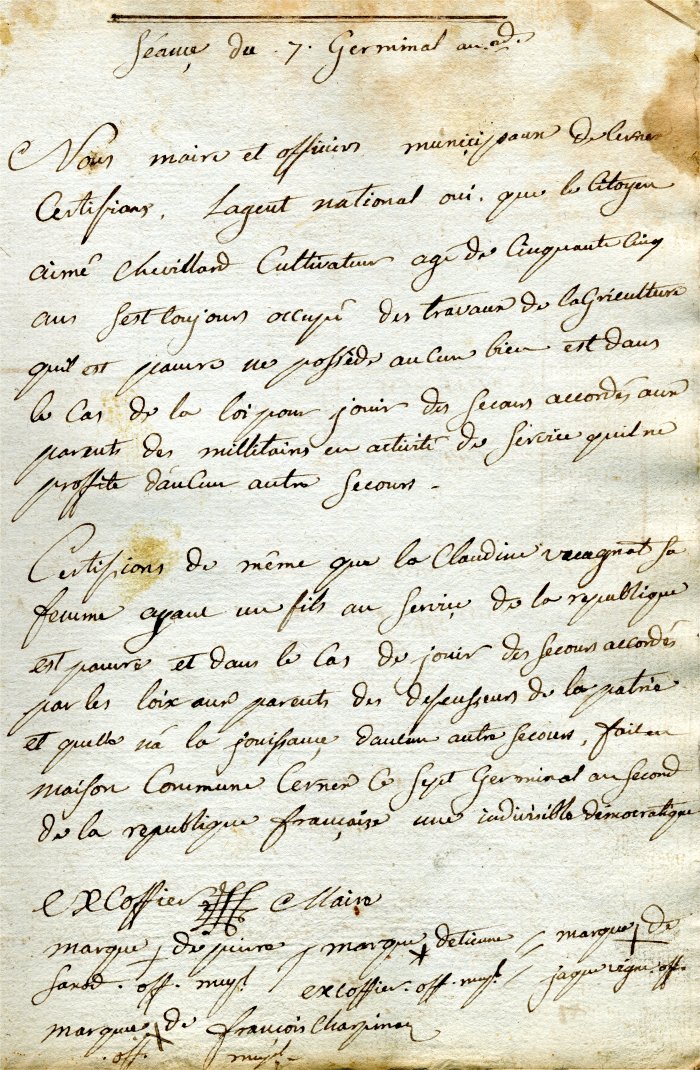 Séance du 7. Germinal an 2d.
Nous maire et officiers municipaux de Cernex
Certifions, Lagent national oui, que le Citoyen
aimé Chevillard Cultivateur agé de Cinquante Cinq
ans sest toujours occupé des travaux de lagriculture
quil est pauvre ne possède aucun bien est dans
le Cas de la loi pour jouir des secours accordés aux
parents des millitairs en activité de service quil ne
proffite dáucun autre secours -
Certifions de même que la Claudine sa
femme ayant un fils au service de la republique
est pauvre et dans le Cas de jouir des secours accordés
par les loix aux parents des deffensseurs de la patrie
et quelle ná la jouissance daucun autre secours, fait en
maison Commune Cernex Ce sept Germinal an second
de la republique françaize une indivisible démocratique
excoffier Maire
marque de pierre marque detienne marque de
off. mupl. excoffier. off. mupl. jaque off.
marque de francois Charpinaz
off. mupl.